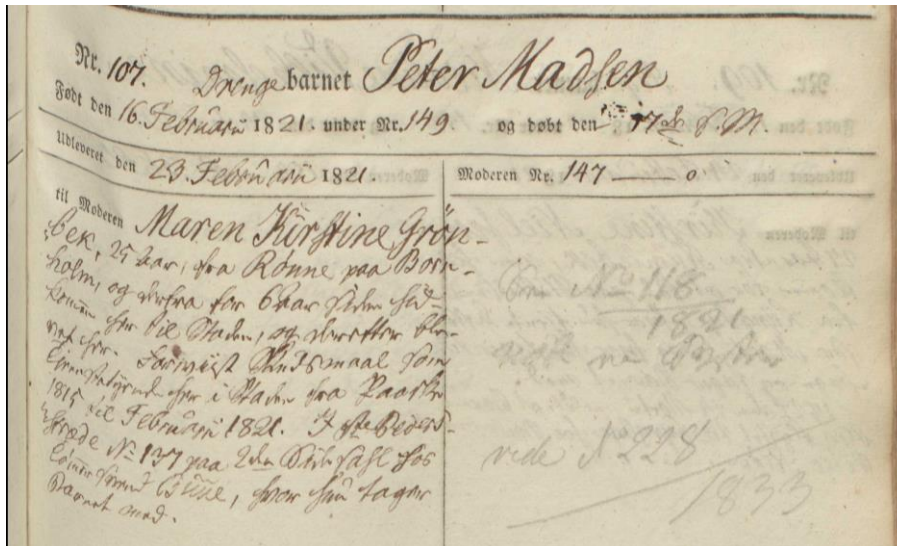 Nr. 107. Drengebarnet Peter Madsen
Født den 16. Februarii 1821. under Nr. 149. og døbt den 17de s. M.
Udleveret den 23. Februarii 1821.
Moderen Nr. 147 — o
til Moderen Maren Kirstine Grön-
bek, 25 Aar, fra Rönne paa Born-
holm, og derfra for 6 Aar siden hid-
kommen her til Staden, og derefter ble-
vet her. Foreviist Skudsmaal som
Tienestetyende her i Staden fra Paaske
1815 til Februarii 1821. I St. Peders-
stræde No 137 paa 2den Sahl hos
, hvor hun tager
Barnet med.
No 118
1821
vide 228
1833